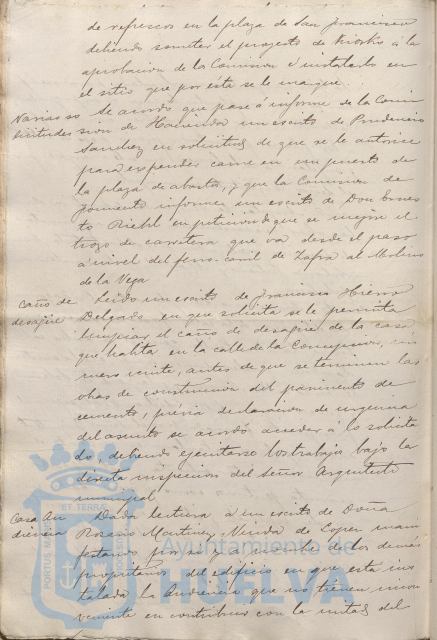 de refrescos en la plaza de San Francisco
debiendo someter el proyecto de Kiosko á la
aprobacion de la Comision é instalarlo en
el sitio que por ésta se le marque.
Varias so
licitudes
Se acordó que pase á informe de la Comi
sion de Hacienda un escrito de Prudencio
Sanchez en solicitud de que se le autorice
para expender carne en un puesto de
la plaza de abastos, y que la Comision de
Fomento informe un escrito de Don Ernes
to Riehl en peticion de que se mejore el
trozo de carretera que va desde el paso
á nivel del ferro-carril de Zafra al Molino
de la Vega
Caño de
desagüe
Leido un escrito de Francisco Hierro
Delgado en que solicita se le permita
limpiar el caño de desagüe de la casa
que habita en la calle de la Concepcion, nú
mero veinte, antes de que se terminen las
obras de construccion del pavimento de
cemento, previa declaracion de urgencia
del asunto se acordó acceder á lo solicita
do, debiendo ejecutarse los trabajos bajo la
directa inspeccion del Señor Arquitecto
municipal
Casa Au
diencia
Dada lectura á un escrito de Doña
Rosario Martinez, Viuda de Coper mani
festando por sí y á nombre de los demás
propietarios del edificio en que está ins
talada la Audiencia que no tienen incon
veniente en contribuir con la mitad del
PORTUS MARIS
ET TERRÆ
Ayuntamiento de
HUELVA